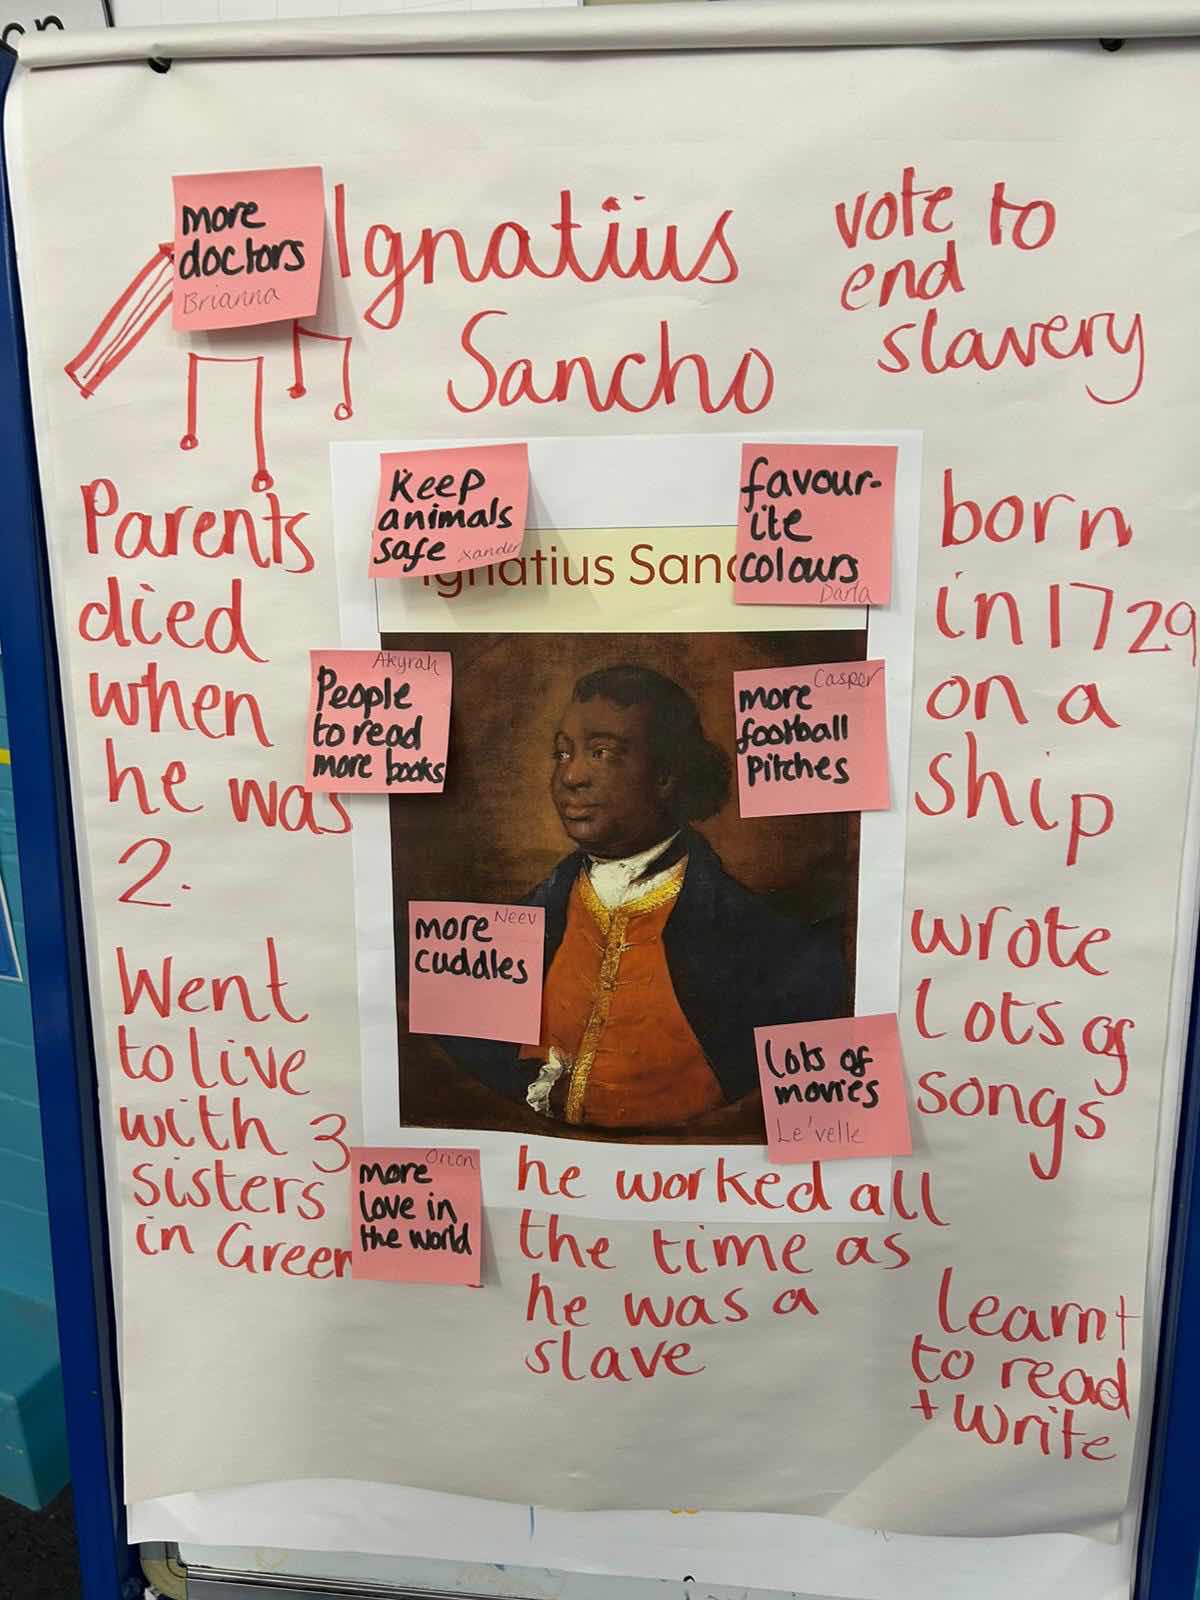 more
doctors
Brianna
Ignatius
Sancho
vote to
end
slavery
Parents
died
when
he was
2.
Went
to live
with 3
sisters
in Green
Keep
animals
safe
Xander
favour-
ite
colours
Darla
Ignatius Sanc
Akyrah
People
to read
more books
Casper
more
football
pitches
Neev
more
cuddles
lots of
movies
Le'velle
Orion
more
love in
the world
born
in 1729
on a
ship
wrote
lots of
songs
he worked all
the time as
he was a
slave
learnt
to read
+ write